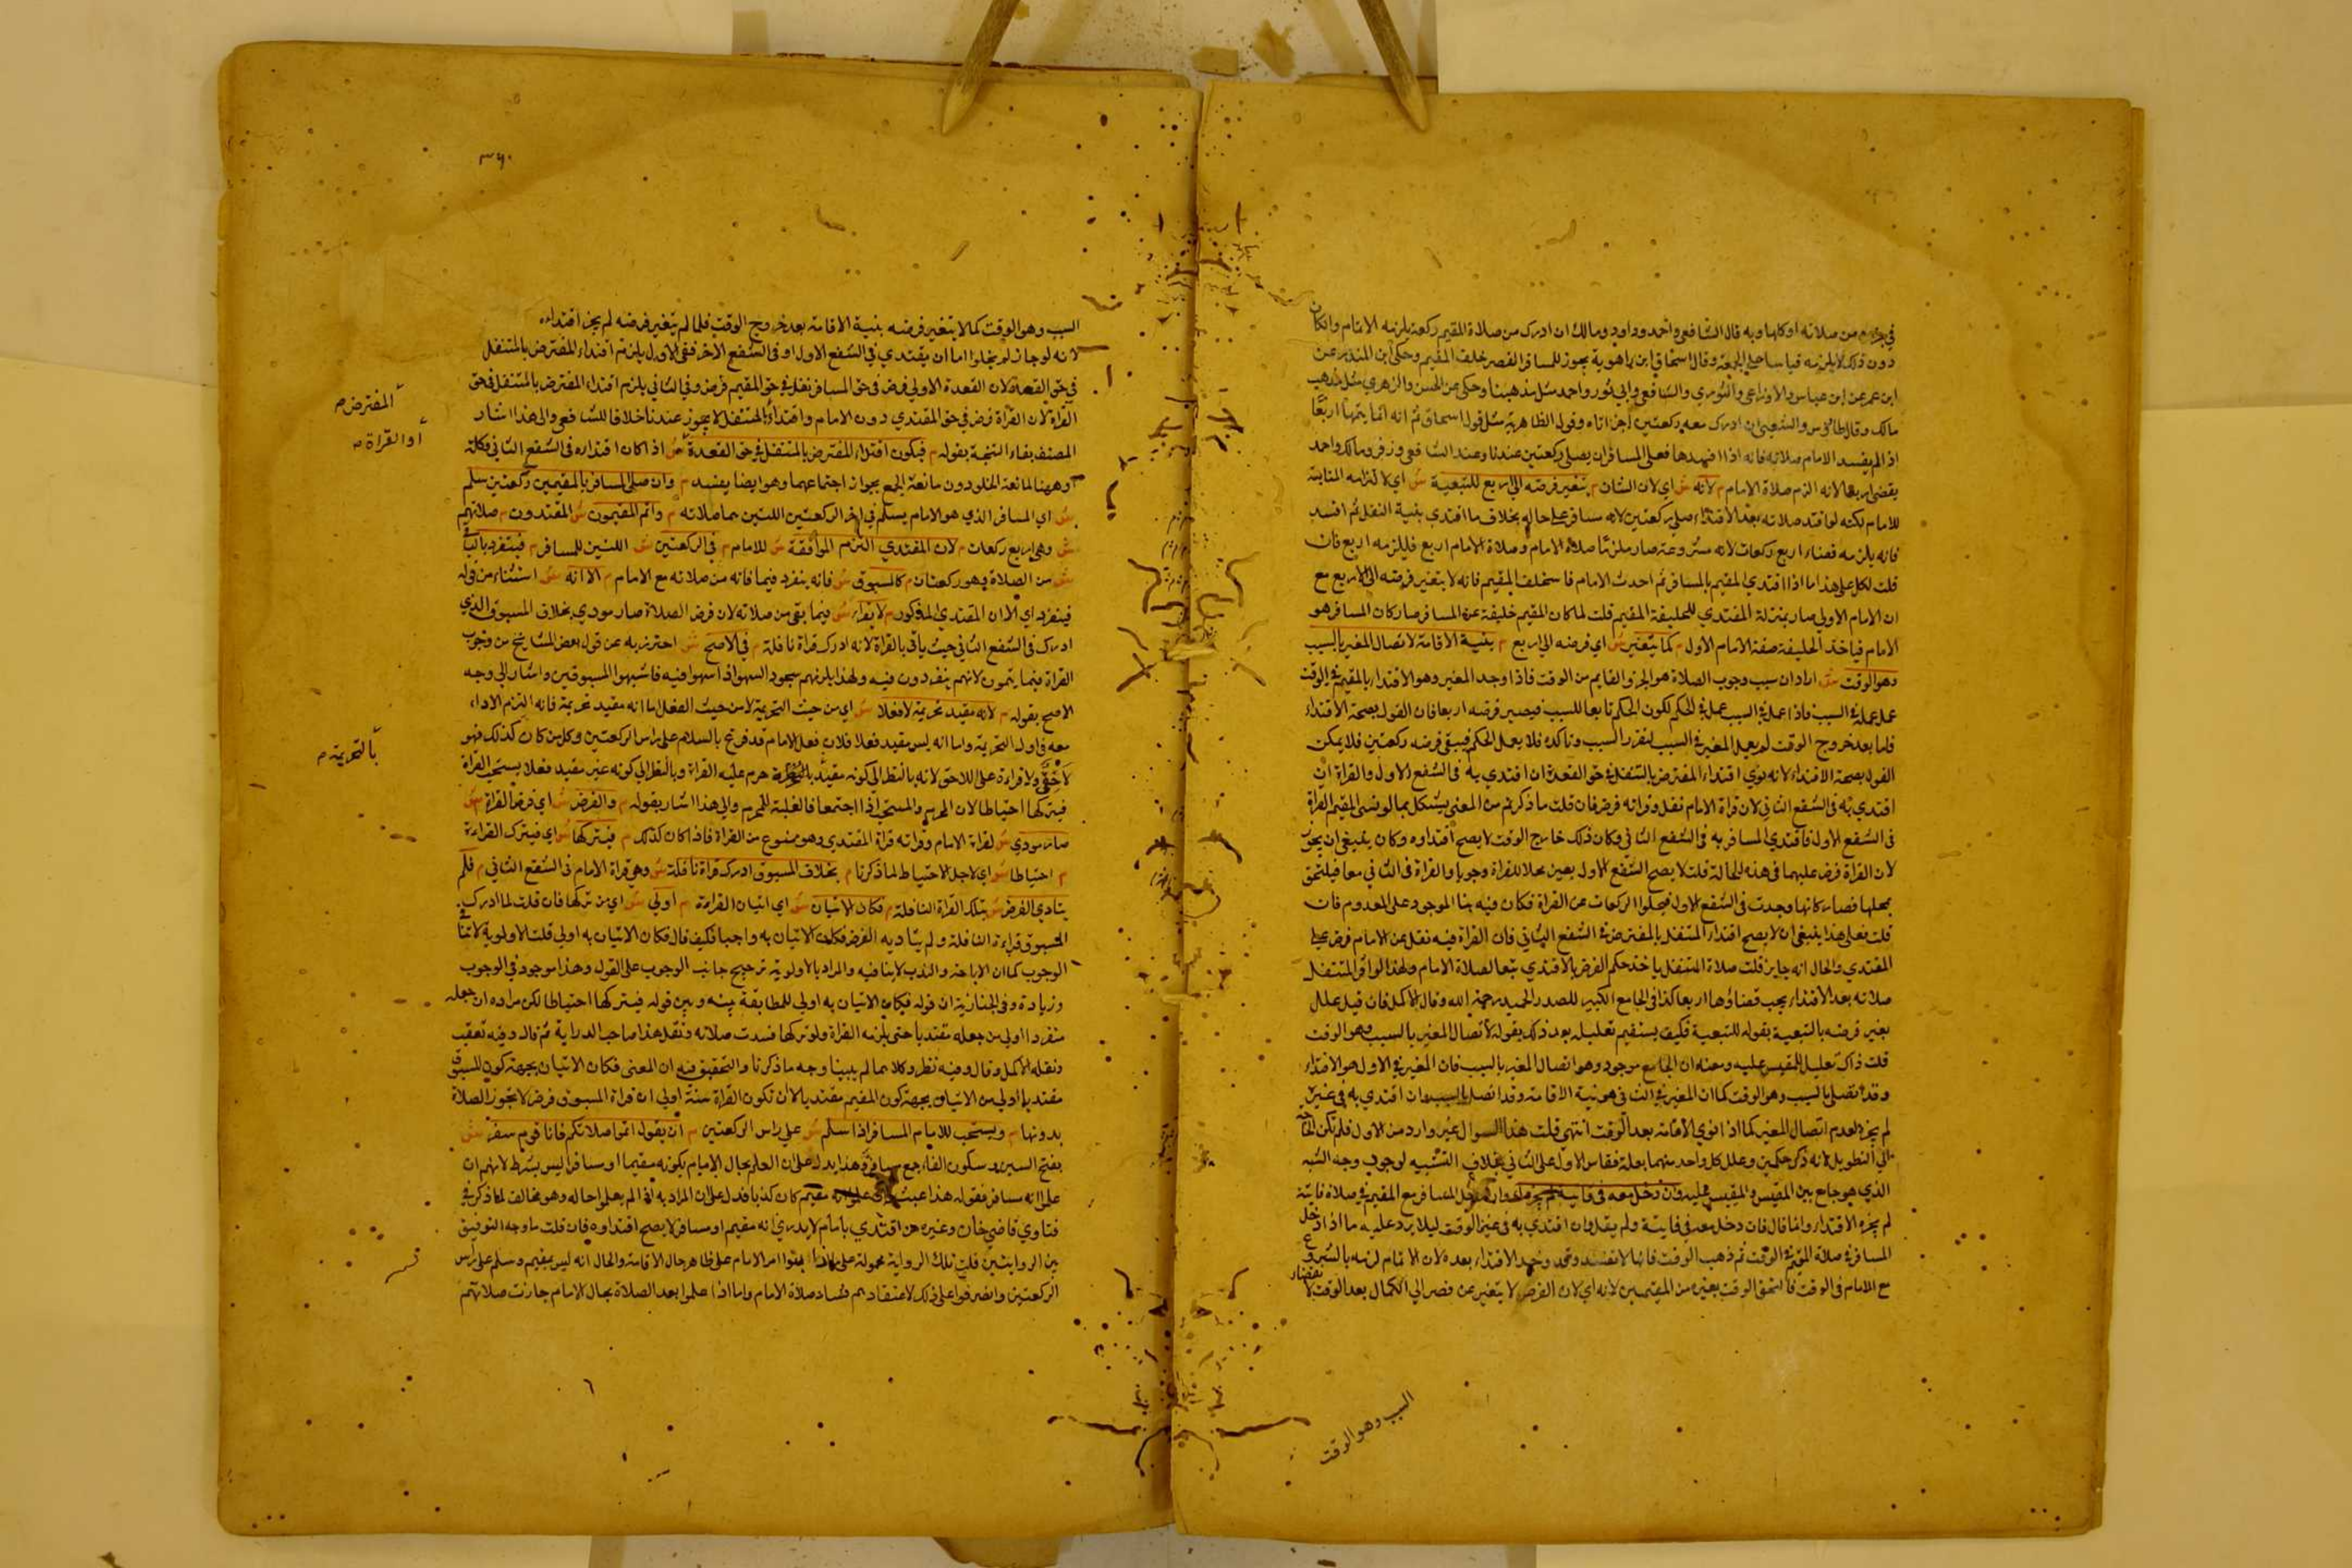 في جزء من صلاته او كلها وبه قال الشافعي واحمد وداود ومالك ان ادرك من صلاة المقيم ركعة يلزمه الاتمام وان كان
دون ذلك لا يلزمه قياسا على الجمعة وقال اسحاق ابن راهوية يجوز للمسافر القصر خلف المقيم وحكى ابن المنذر عن
ابن عمر عن ابن عباس والاوزاعي والثوري والشافعي وابي ثور واحمد مثل مذهبنا وحكى عن الحسن والزهري مثل مذهب
مالك وقال طاؤس والشعبي ان ادرك معه ركعتين اجزاتاه وقول الظاهرية مثل قول اسحاق ثم انه انما يتمها اربعا
اذا لم يفسد الامام صلاته فانه اذا افسدها فعلى المسافر ان يصلي ركعتين عندنا وعند الشافعي وزفر ومالك واحمد
يقضي اربعا لانه الزم صلاة الامام م لانه ش اي لان الشان م يتغير فرضه الى اربع للتبعية ش اي لالتزامه المتابعة
للامام لكنه لو افسد صلاته بعد الاقتداء صلى ركعتين لانه مسافر على حاله بخلاف ما اقتدي بنية النفل ثم افسد
فانه يلزمه قضاء اربع ركعات لانه صار ملزما صلاة الامام وصلاة الامام اربع فليلزمه اربع فان
قلت لكل على هذا ما اذا اقتدي المقيم بالمسافر ثم احدث الامام فاستخلف المقيم فانه لا يتغير فرضه الى الاربع مع
ان الامام الاول صار بمنزلة المقتدي للخليفة المقيم قلت لما كان المقيم خليفة عن المسافر صار كان المسافر هو
الامام فياخذ الخليفة صفة الامام الاول م كما يتغير ش اي فرضه الى اربع م بنية الاقامة لاتصال المغير بالسبب
وهو الوقت ش اراد ان سبب وجوب الصلاة هو الجزء القايم من الوقت فاذا وجد المغير وهو الاقتداء بالمقيم في الوقت
عمل عمله في السبب فاذا عمل في السبب عمل في الحكم لكون الحكم تابعا للسبب فيصير فرضه اربعا فان القول بصحة الاقتداء
فاما بعد خروج الوقت لم يعمل المغير في السبب لتقرر السبب وتاكده فلا يعمل الحكم فيبقى فرضه ركعتين فلا يمكن
القول بصحة الاقتداء لانه يؤدي اقتداء المفترض بالمتنفل في حق القعدة ان اقتدي به في الشفع الاول والقراة ان
اقتدي به في الشفع الثاني لان قراة الامام نفل وقراته فرض فان قلت ما ذكرتم من المعنى يشكل بما لو نسى المقيم القراة
في الشفع الاول فاقتدي المسافر به في الشفع الثاني وكان ذلك خارج الوقت لا يصح اقتداوه وكان ينبغي ان يجوز
لان القراة فرض عليهما في هذه الحالة قلت لا يصح الشفع الاول بعين محلا للقراة وجوبا والقراة في الثاني معا فيلتحق
بمحلها فصار كانها وجدت في الشفع الاول فخلوا الركعات عن القراة فكان فيه بنا الموجود على المعدوم فان
قلت فعلى هذا ينبغي ان لا يصح اقتداء المتنفل بالمفترض في الشفع الثاني فان القراة فيه نفل من الامام فرض على
المقتدي والحال انه جايز قلت صلاة المتنفل ياخذ حكم الفرض بالاقتدي تبعا لصلاة الامام ولهذا لو افسد المتنفل
صلاته بعد الاقتداء يجب قضاؤها اربعا كذا في الجامع الكبير للصدر الحميد رحمه الله وقال الاكمل فان قيل علل
بغير فرضه بالتبعية بقوله للتبعية فكيف يستقيم تعليله بعد ذلك بقوله لاتصال المغير بالسبب وهو الوقت
قلت ذاك تعليل للمقيس عليه ومعناه ان الجامع موجود وهو اتصال المغير بالسبب فان المغير في الاول هو الاقتداء
وقد اتصل بالسبب وهو الوقت كما ان المغير في الثاني هو نية الاقامة وقد اتصل بالسبب وان اقتدي به في غيره
لم يجز لعدم اتصال المغير كما اذا نوي الاقامة بعد الوقت انتهى قلت هذا السوال غير وارد من الاول فلم تكن لحاجة
الي التطويل لانه ذكر حكمين وعلل كل واحد منهما بعلة فقاس الاول على الثاني بخلاف التشبيه لوجوب وجه الشبه
الذي هو جامع بين المقيس والمقيس عليه وان دخل معه في فايتة لم يجزه اي وان دخل المسافر مع المقيم في صلاة فايتة
لم يجزه الاقتداء وانما قال فان دخل معه في فايتة ولم يقل وان اقتدي به في غير الوقت ليلا يرد عليه ما اذا دخل
المسافر في صلاة المقيم في الوقت ثم ذهب الوقت فانها لا تفسد وقد وجد الاقتداء بعده لان الاتمام لزمه بالشروع
مع الامام في الوقت فالتحق الوقت بغيره من المقيمين لانه اي لان الفرض لا يتغير عن قصر الى الكمال بعد الوقت لانقضاء
السبب وهو الوقت
٣٦٠
السبب وهو الوقت كما لا يتغير فرضه بنية الاقامة بعد خروج الوقت فلما لم يتغير فرضه لم يجز اقتداءه
لانه لو جاز لم يخلوا اما ان يقتدي في الشفع الاول او في الشفع الاخر ففي الاول يلزم اقتداء المفترض بالمتنفل
في حق القعدة لان القعدة الاولى فرض في حق المسافر نفل في حق المقيم فرض وفي الثاني يلزم اقتداء المفترض بالمتنفل في حق
القراة لان القراة فرض في حق المقتدي دون الامام واقتداء بالمتنفل لا يجوز عندنا خلافا للشافعي والى هذا اشار
المصنف بفاء النتيجة بقوله م فيكون اقتداء المفترض بالمتنفل في حق القعدة ش اذا كان اقتداره في الشفع الثاني وكلمة
او ههنا لمانعة الخلو دون مانعة الجمع بجواز اجتماعهما وهو ايضا يفسد م وان صلى المسافر بالمقيمين ركعتين سلم
ش اي المسافر الذي هو الامام يسلم في اخر الركعتين اللتين هما صلاته م واتم المقيمون ش المقتدون م صلاتهم
ش وهي اربع ركعات م لان المقتدي التزم الموافقة ش للامام م في الركعتين ش اللتين للمسافر م فينفرد بالباقي
ش من الصلاة وهو ركعتان م كالمسبوق ش فانه ينفرد فيما فاته من صلاته مع الامام م الا انه ش استثناء من قوله
فينفرد اي الا ان المقتدي المذكور م لا يقراء ش فيما بقى من صلاته لان فرض الصلاة صار مودي بخلاف المسبوق الذي
ادرك في الشفع الثاني حيث ياتي بالقراة لانه ادرك قراة نافلة م في الاصح ش احترز به عن قول بعض المشايخ من وجوب
القراة فيما يتمون لانهم ينفردون فيه ولهذا يلزمهم سجود السهو اذا سهوا فيه فاشبهوا المسبوقين واشار الى وجه
الاصح بقوله م لانه مقيد تحريمة لا فعلا ش اي من حيث التحريمة لا من حيث الفعل اما انه مقيد تحريمة فانه التزم الاداء
معه في اول التحريمة واما انه ليس مقيد فعلا فلان فعل الامام قد فرغ بالسلام على راس الركعتين وكل من كان كذلك فهو
لاحق ولا قراءة على اللاحق لانه بالنظر الى كونه مقيد بالتحريمة حرم عليه القراة وبالنظر الى كونه غير مقيد فعلا يستحب القراة
فيتركها احتياطا لان المحرم والمستحب اذا اجتمعا فالغلبة للمحرم والى هذا اشار بقوله م والفرض ش اي فرض القراة م
صار مودي ش لقراة الامام وقراته قراة المقتدي وهو ممنوع من القراة فاذا كان كذلك م فيتركها ش اي فيترك القراءة
م احتياطا ش اي لاجل الاحتياط لما ذكرنا م بخلاف المسبوق ادرك قراة نافلة ش وهي قراة الامام في الشفع الثاني م فلم
يتادي الفرض ش بتلك القراة النافلة م فكان الاتيان ش اي اتيان القراءة م اولى ش اي من تركها فان قلت لما ادرك
المسبوق قراءة النافلة ولم يتاد به الفرض فكان الاتيان به واجبا فكيف قال فكان الاتيان به اولى قلت الاولوية لا تنافي
الوجوب كما ان الاباحة والندب لا ينافيه والمراد بالاولوية ترجيح جانب الوجوب على القول وهذا موجود في الوجوب
وزيادة وفي الخبازية ان قوله فكان الاتيان به اولى للمطابقة بينه وبين قوله فيتركها احتياطا لكن مراده ان جعله
منفردا اولى من جعله مقتديا حتى يلزمه القراة ولو تركها فسدت صلاته ونقل هذا صاحب الدراية ثم قال وفيه تعقب
ونقله الاكمل وقال وفيه نظر وكلاهما لم يبينا وجه ما ذكرنا والتحقيق فيه ان المعنى فكان الاتيان بجهة كون المسبوق
مقتديا اولى من الاتيان بجهة كون المقيم مقتديا لان تكون القراة سنة اولى ان قراة المسبوق فرض لا تجوز الصلاة
بدونها م ويستحب للامام المسافر اذا سلم ش على راس الركعتين م ان يقول اتموا صلاتكم فانا قوم سفر ش
بفتح السين وسكون الفاء جمع مسافر وهذا يدل على ان العلم بحال الامام بكونه مقيما او مسافرا ليس بشرط لانهم ان
علموا انه مسافر فقوله هذا عبث وان علموا انه مقيم كان كذبا فدل على ان المراد به اذا لم يعلموا حاله وهو مخالف لما ذكر في
فتاوي قاضي خان وغيره من اقتدي بامام لا يدري انه مقيم او مسافر لا يصح اقتداوه فان قلت ما وجه التوفيق
بين الروايتين قلت تلك الرواية محمولة على ما اذا بنوا امر الامام على ظاهر حال الاقامة والحال انه ليس بمقيم وسلم على راس
الركعتين وانصرفوا على ذلك لاعتقادهم فساد صلاة الامام واما اذا علموا بعد الصلاة بحال الامام جازت صلاتهم
المفترض
او القراة
بالتحريمة